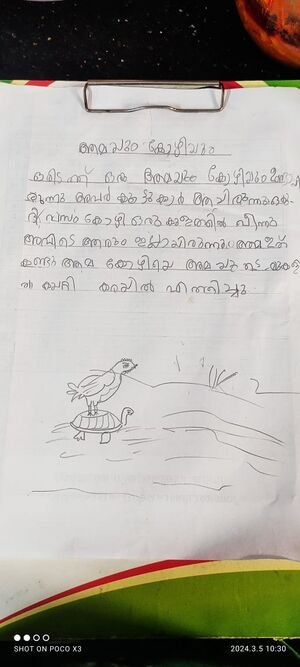 ആമയും കോഴിയും
ഒരിടത്ത് ഒരു ആമയും കോഴിയും ഉണ്ടാ
യിരുന്നു അവർ കൂട്ടുകാർ ആയിരുന്നു ഒരു
ദിവസം കോഴി ഒരു കുളത്തിൽ വീണു
അവിടെ ആരും ഇല്ലായിരുന്നു. ആമ ഇത്
കണ്ടു ആമ കോഴിയെ ആമയുടെ മുകളി
ൽ കയറ്റി കരയിൽ എത്തിച്ചു
SHOT ON POCO X3
2024.3.5 10:30